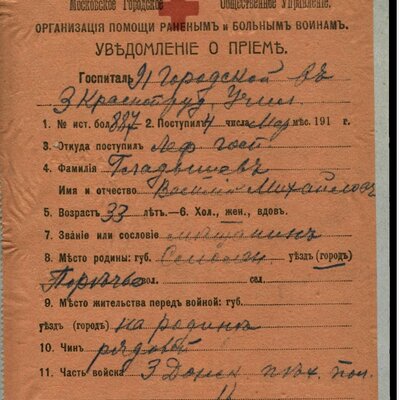 Московское Городское Общественное Управленіе.
ОРГАНИЗАЦІЯ ПОМОЩИ РАНЕНЫМЪ и БОЛЬНЫМЪ ВОИНАМЪ.
УВѢДОМЛЕНІЕ О ПРІЕМѢ.
Госпиталь 91 Городской въ
3 Училищ
1. № ист. бол. 887 2. Поступилъ 4 числа мѣс. 191 г.
3. Откуда поступилъ
4. Фамилія Гладышевъ
Имя и отчество Василій Михайловъ
5. Возрастъ 33 лѣтъ.—6. Хол., жен., вдов.
7. Званіе или сословіе мѣщанинъ
8. Мѣсто родины: губ. уѣздъ (городъ)
Порѣчье вол. сел.
9. Мѣсто жительства передъ войной: губ.
уѣздъ (городъ) на родинѣ
10. Чинъ рядовой
11. Часть войска 3 пѣх. пол.